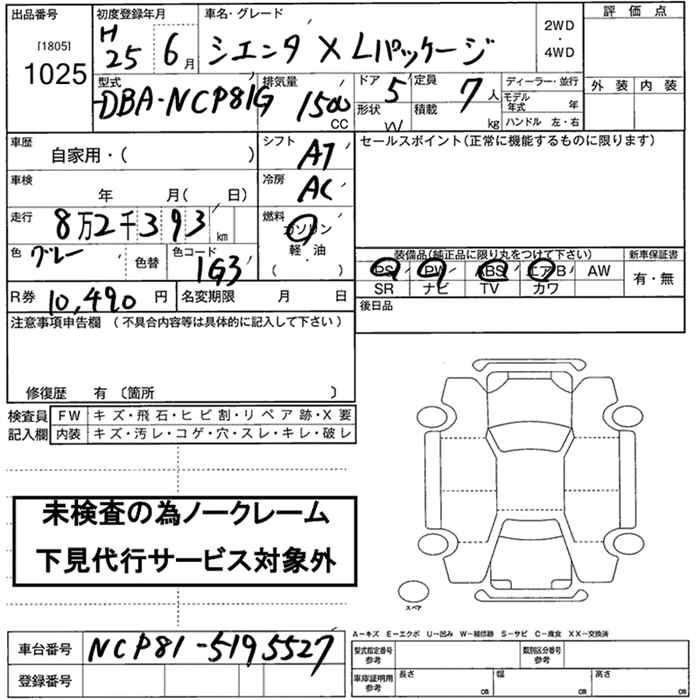 出品番号 初度登録年月 車名・グレード 評価点
[1805] 1025 H25 6月 シエンタ X Lパッケージ 2WD・4WD
外装 内装
型式 排気量 ドア 定員 ディーラー・並行
DBA-NCP81G 1500 CC 5 7人 モデル年式 年
形状 W 積載 kg ハンドル 左・右
車歴 自家用・( ) シフト AT セールスポイント(正常に機能するものに限ります)
車検 年 月( 日) 冷房 AC
走行 8万2千393km 燃料 ガソリン
色 グレー 色替 色コード 1G3 軽・油
( )
装備品(純正品に限り丸をつけて下さい) 新車保証書
PS PW ABS エアB AW 有・無
SR ナビ TV カワ
R券 10,490円 名変期限 月 日 後日品
注意事項申告欄 (不具合内容等は具体的に記入して下さい)
修復歴 有 〔箇所 〕
検査員 FW キズ・飛石・ヒビ割・リペア跡・X要
記入欄 内装 キズ・汚レ・コゲ・穴・スレ・キレ・破レ
未検査の為ノークレーム
下見代行サービス対象外
スペア
A－キズ E－エクボ U－凹み W－補修跡 S－サビ C－腐食 XX－交換済
車台番号 NCP81-5195527 型式指定番号 参考 類別区分番号 参考
登録番号 車庫証明用 参考 長さ cm 幅 cm 高さ cm